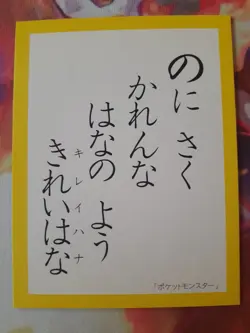 のに さく
かれんな
はなの よう
きれいはな
キレイハナ
「ポケットモンスター」